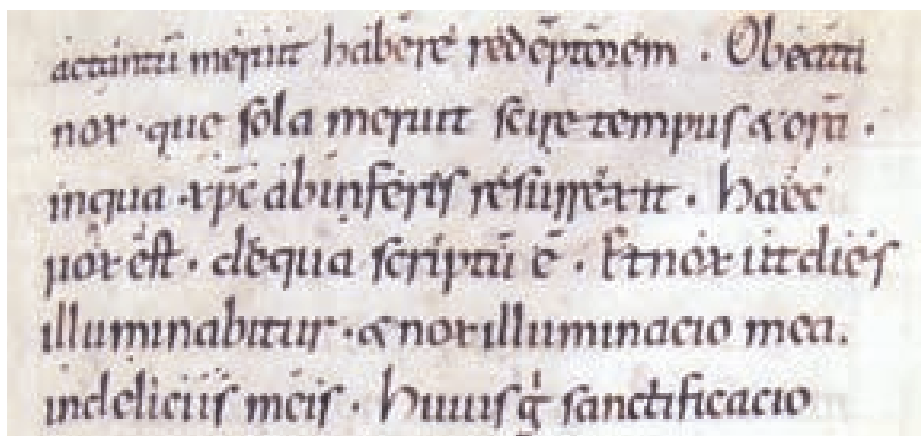 actantū meruit habere redēptorem . Obeata
nox · que sola meruit scire tempus & orā .
inqua · xp̄c abinferis resurrexit . haec
nox est . dequa scriptū ē . Et nox ut dies
illuminabitur · & nox illuminacio mea .
indeliciis meis . huius gͥ sanctificacio